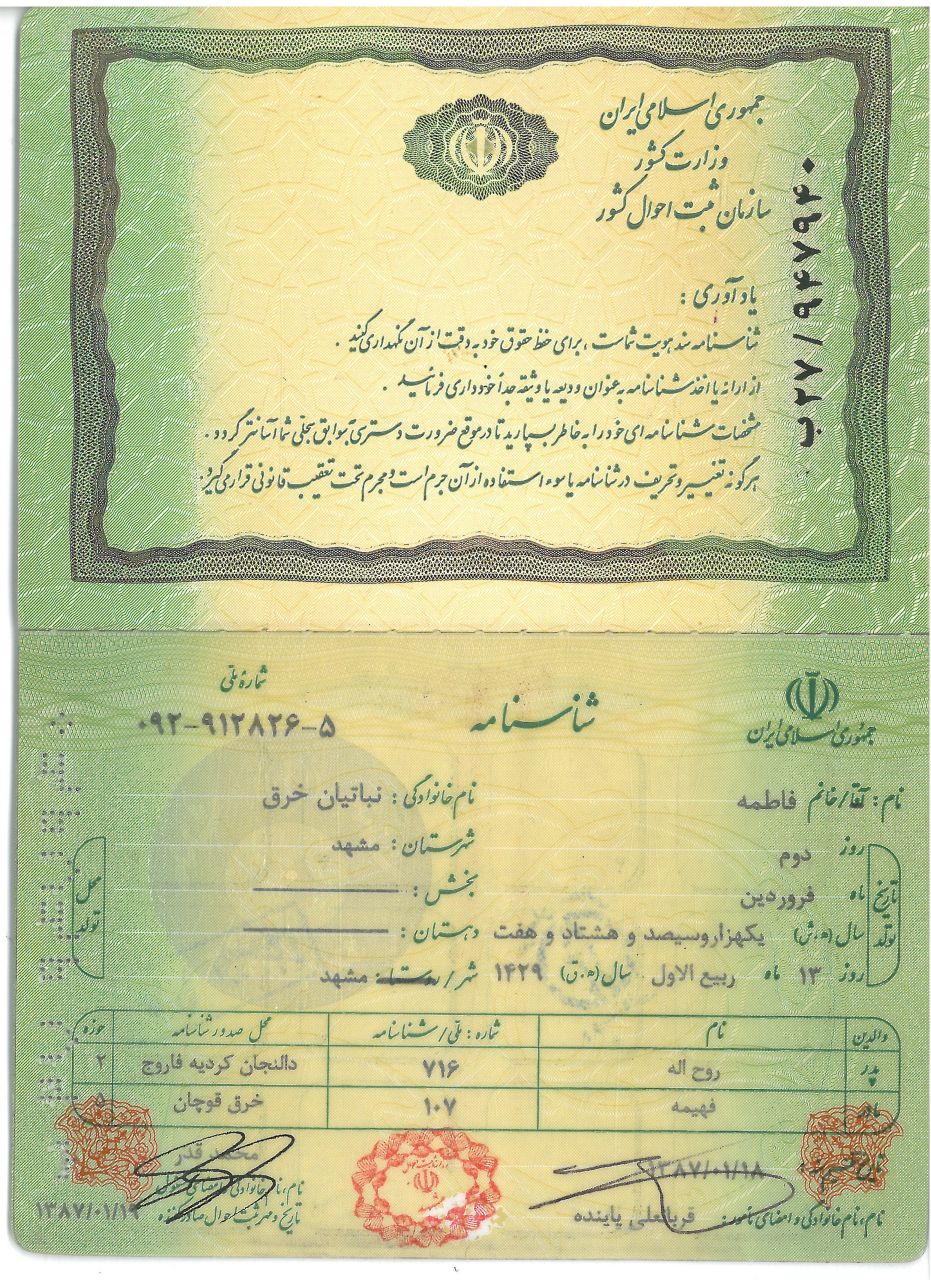 جمهوری اسلامی ایران
وزارت کشور
سازمان ثبت احوال کشور
ب ۲۷/۹۴۷۹۴۰
یادآوری :
شناسنامه سند هویت شماست ، برای حفظ حقوق خود به دقت از آن نگهداری کنید .
از ارائه یا اخذ شناسنامه به عنوان ودیعه یا وثیقه جداً خودداری فرمائید .
مشخصات شناسنامه ای خود را به خاطر بسپارید تا در موقع ضرورت دسترسی بسوابق سجلی شما آسانتر گردد .
هرگونه تغییر و تحریف در شناسنامه یا سوء استفاده از آن جرم است و مجرم تحت تعقیب قانونی قرار می گیرد.
جمهوری اسلامی ایران
شناسنامه
شماره ملی
۰۹۲-۹۱۲۸۲۶-۵
نام : آقا/خانم فاطمه نام خانوادگی : نباتیان خرق
تاریخ تولد
روز دوم
ماه فروردین
سال (ه.ش) یکهزاروسیصد و هشتاد و هفت
روز ۱۳ ماه ربیع الاول سال (ه.ق) ۱۴۲۹
محل تولد
شهرستان : مشهد
بخش :
دهستان :
شهر/روستا : مشهد
والدین نام شماره : ملی/شناسنامه محل صدور شناسنامه حوزه
پدر روح اله ۷۱۶ دالنجان کردیه فاروج ۲
مادر فهیمه ۱۰۷ خرق قوچان ۵
۱۳۸۷/۰۱/۱۸
نام، نام خانوادگی و امضای مأمور: قربانعلی پاینده
محمد قدر
نام، نام خانوادگی و امضای
تاریخ و مهر ثبت احوال صادرکننده ۱۳۸۷/۰۱/۱۹